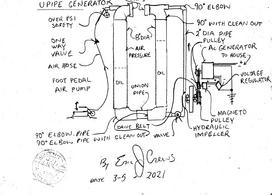 UPIPE GENERATOR
OVER PSI
SAFETY
ONE
WAY
VALVE
AIR HOSE
FOOT PEDAL
AIR PUMP
8" DIA
AIR
PRESSURE
OIL
OIL
UNION
PIPE
90° ELBOW
90° WITH CLEAN OUT
2" DIA PIPE
PULLEY
AC GENERATOR
TO HOUSE
VOLTAGE
REGULATOR
MAGNETO
PULLEY
HYDRAULIC
IMPELLER
DRIVE BELT
VALVE
90° ELBOW PIPE
90° ELBOW PIPE WITH CLEAN OUT
By Eric J
DATE 3-5 2021